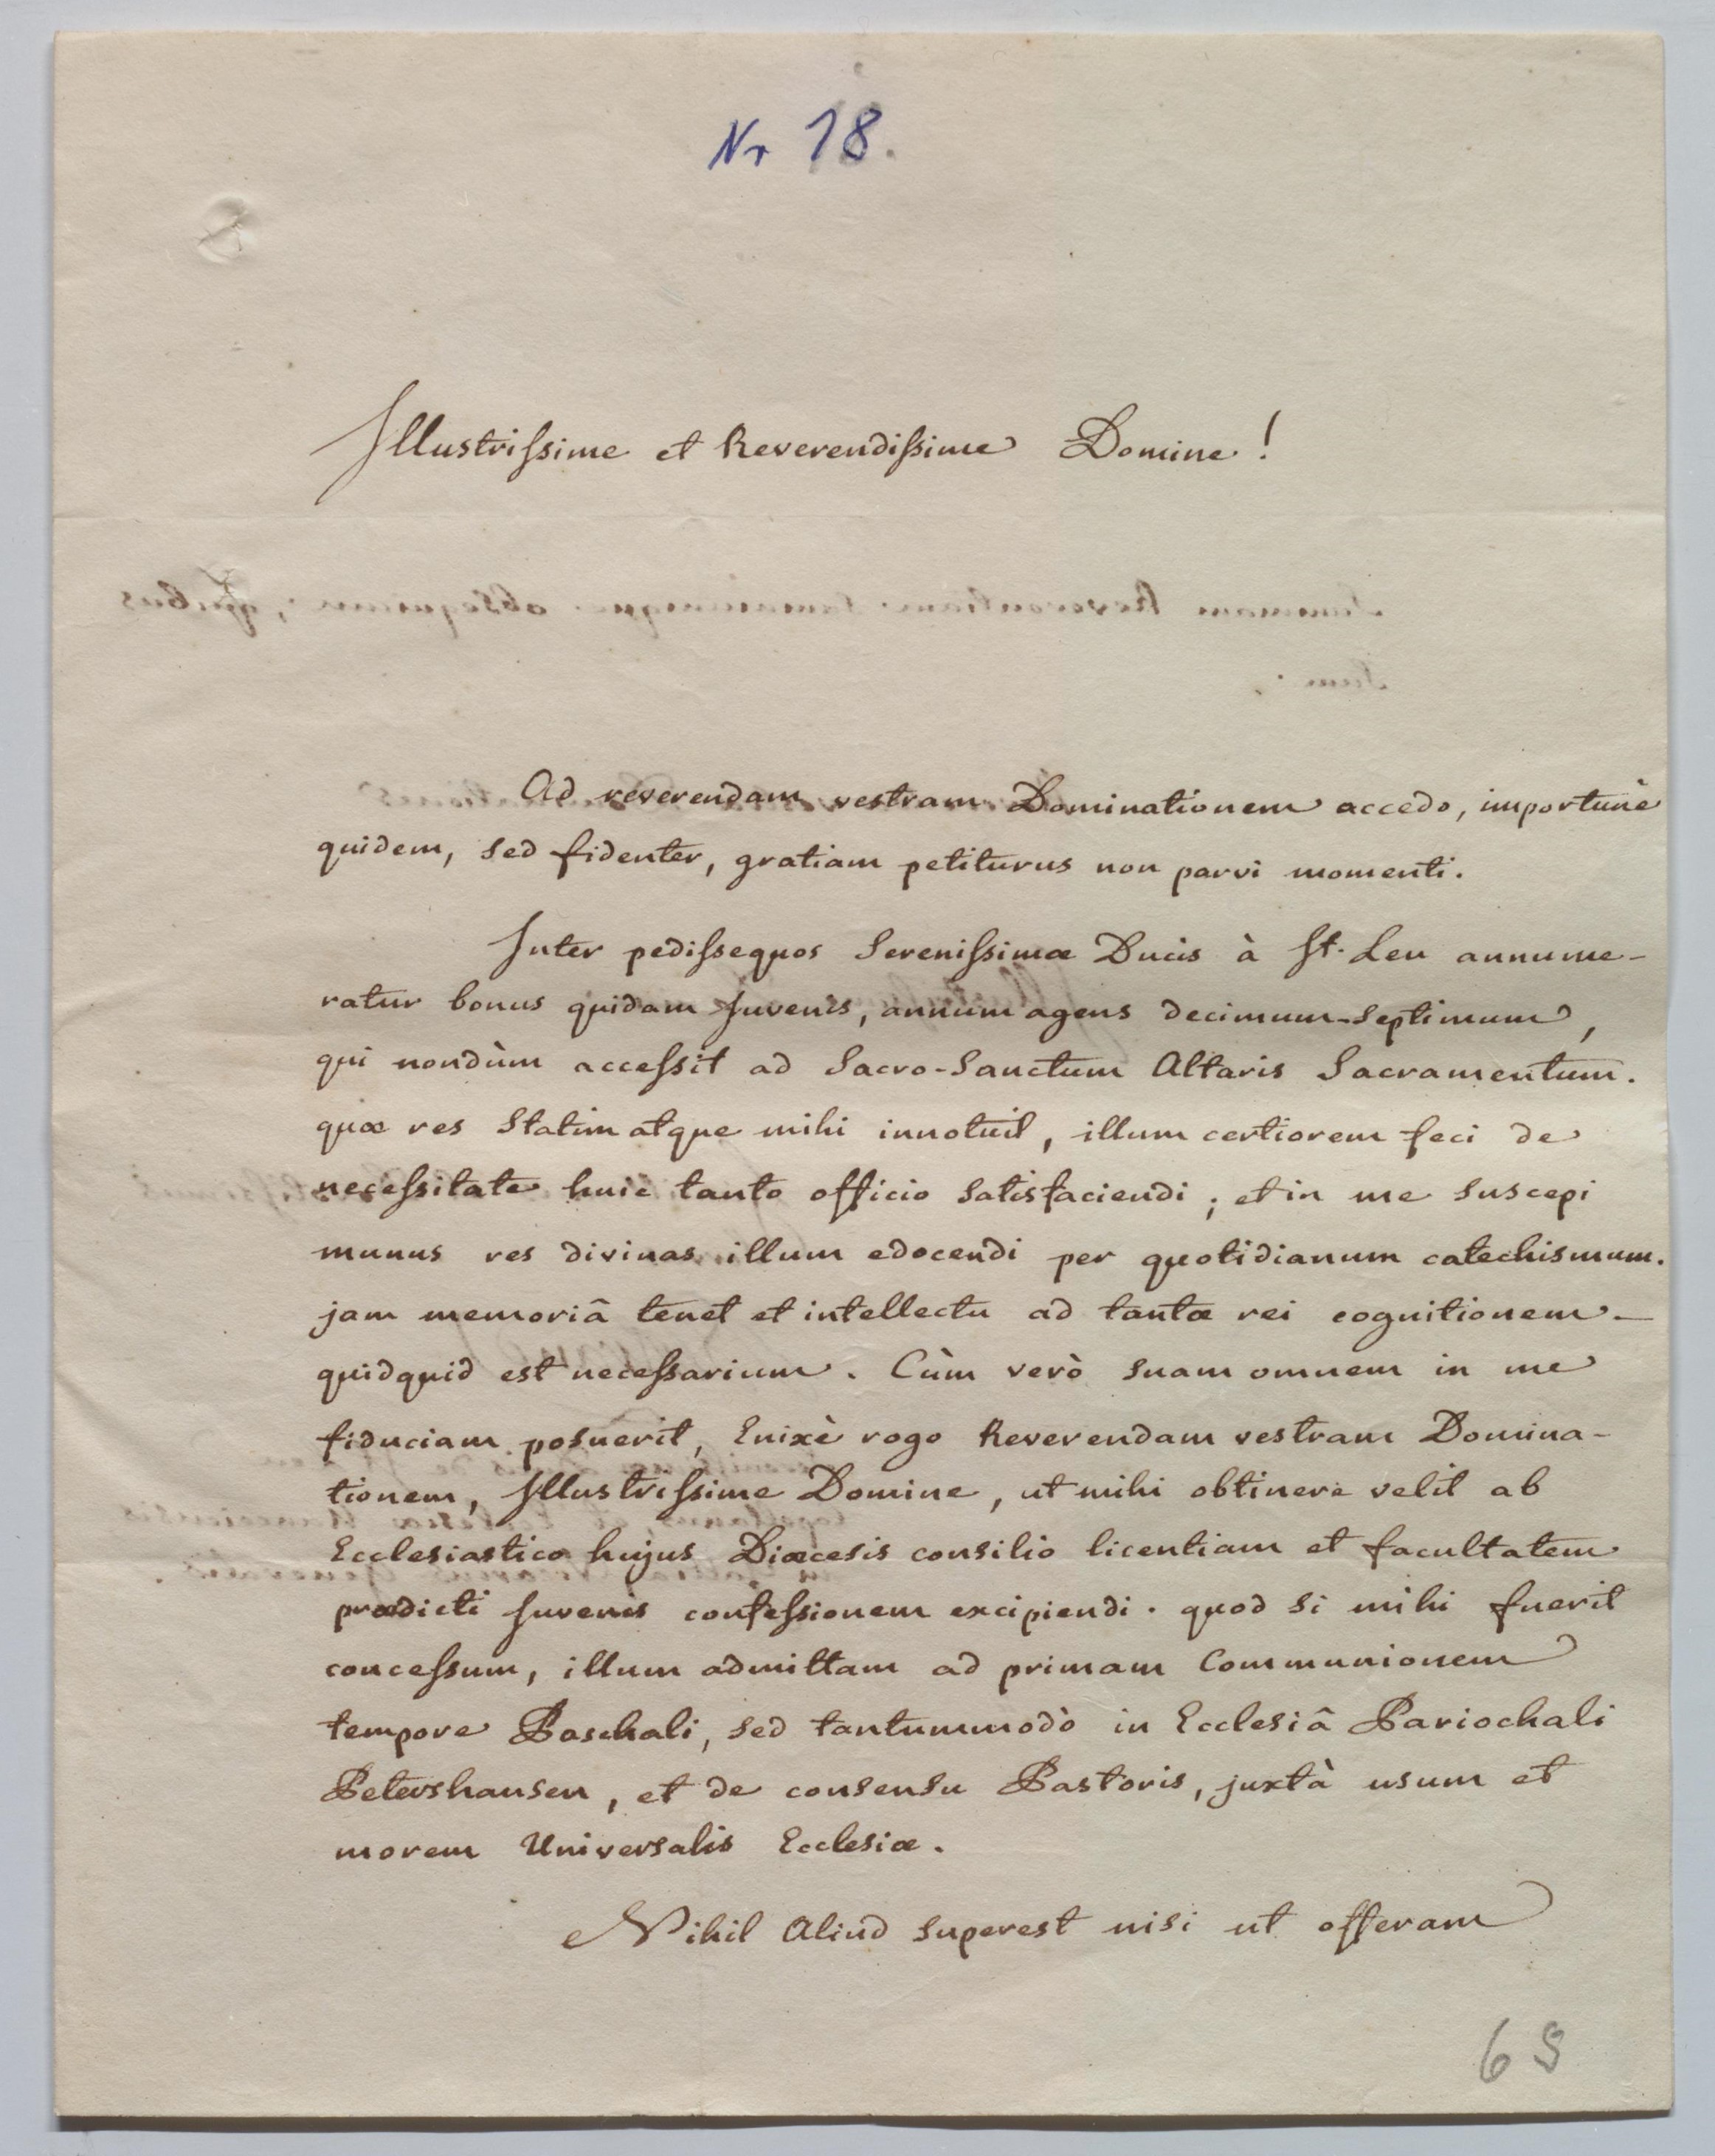 Nr 18.
Illustrissime et Reverendissime Domine !
Ad reverendam vestram Dominationem accedo, importunè
quidem, sed fidenter, gratiam petiturus non parvi momenti.
Inter pedissequos Serenissimæ Ducis à St. Leu annume-
ratur bonus quidam Juvenis, annum agens decimum-septimum,
qui nondùm accessit ad Sacro-Sanctum Altaris Sacramentum.
quæ res statim atque mihi innotuit, illum certiorem feci de
necessitate huic tanto officio satisfaciendi ; et in me suscepi
munus res divinas illum edocendi per quotidianum catechismum.
jam memoriâ tenet et intellectu ad tantæ rei cognitionem
quidquid est necessarium. Cùm verò suam omnem in me
fiduciam posuerit, Enixè rogo Reverendam vestram Domina-
tionem, Illustrissime Domine, ut mihi obtinere velit ab
Ecclesiastico hujus Diœcesis consilio licentiam et facultatem
prædicti Juvenis confessionem excipiendi. quod si mihi fuerit
concessum, illum admittam ad primam Communionem
tempore Paschali, sed tantummodò in Ecclesiâ Pariochali
Petershausen, et de consensu Pastoris, juxtà usum et
morem Universalis Ecclesiæ.
Nihil Aliud superest nisi ut offeram